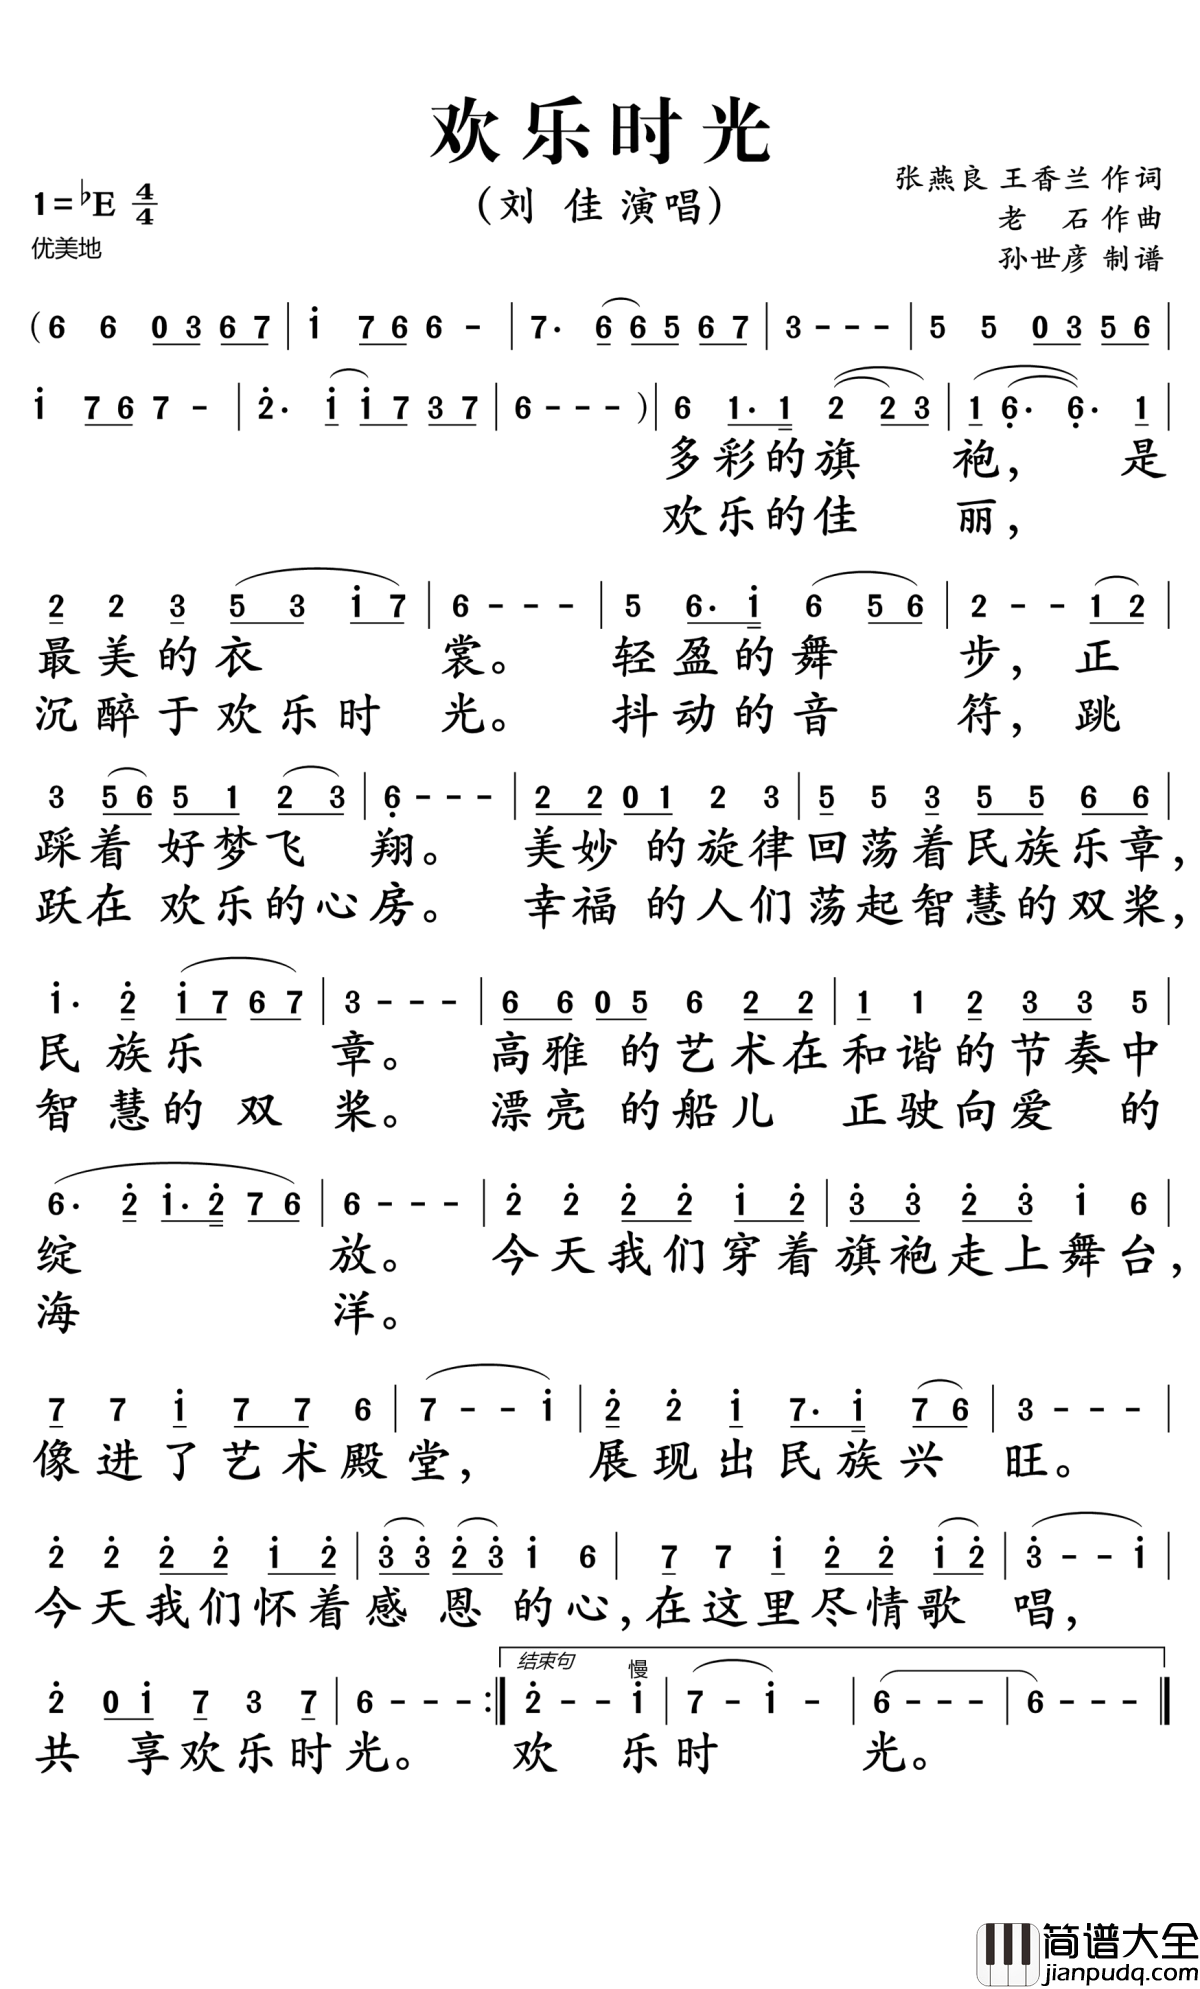 欢乐时光
(刘 佳 演唱)
张燕良 王香兰 作词
老 石 作曲
孙世彦 制谱
1=♭E 4/4
优美地
(6 6 0 3 6 7 | i 7 6 6 - | 7· 6 6 5 6 7 | 3 - - - | 5 5 0 3 5 6 |
i 7 6 7 - | 2· i i 7 3 7 | 6 - - - ) | 6 1· 1 2 2 3 | 1 6· 6· 1 |
多彩的旗 袍， 是
欢乐的佳 丽，
2 2 3 5 3 i 7 | 6 - - - | 5 6· i 6 5 6 | 2 - - 1 2 |
最美的衣 裳。 轻盈的舞 步， 正
沉醉于欢乐时 光。 抖动的音 符， 跳
3 5 6 5 1 2 3 | 6 - - - | 2 2 0 1 2 3 | 5 5 3 5 5 6 6 |
踩着 好梦飞 翔。 美妙 的旋律回荡着民族乐章，
跃在 欢乐的心房。 幸福 的人们荡起智慧的双桨，
i· 2 i 7 6 7 | 3 - - - | 6 6 0 5 6 2 2 | 1 1 2 3 3 5 |
民族乐 章。 高雅 的艺术在和谐的节奏中
智慧的 双 桨。 漂亮 的船儿 正驶向爱 的
6· 2 i· 2 7 6 | 6 - - - | 2 2 2 2 i 2 | 3 3 2 3 i 6 |
绽 放。 今天我们穿着旗袍走上舞台，
海 洋。
7 7 i 7 7 6 | 7 - - i | 2 2 i 7· i 7 6 | 3 - - - |
像进了艺术殿堂， 展现出民族兴 旺。
2 2 2 2 i 2 | 3 3 2 3 i 6 | 7 7 i 2 2 i 2 | 3 - - i |
今天我们怀着感 恩 的心，在这里尽情歌 唱，
结束句 慢
2 0 i 7 3 7 | 6 - - - :‖ 2 - - i | 7 - i - | 6 - - - | 6 - - - ‖
共 享欢乐时光。 欢 乐时 光。
简谱大全
jianpudq.com